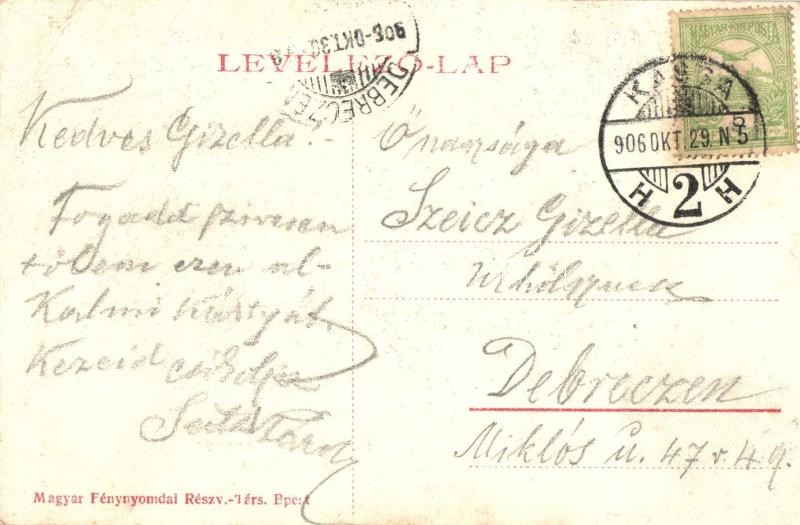 906-OKT.30
DEBRECZEN
LEVELEZŐ-LAP
MAGYAR KIR. POSTA
KASSA
906 OKT. 29. N 5
H 2 H
Kedves Gizella!
Fogadd szivesen
tőlem ezen al-
kalmi kártyát.
Kezeid csókolja
Őnagysága
Szeicz Gizella
urhölgynek
Debreczen
Miklós u. 47 v 49.
Magyar Fénynyomdai Részv.-Társ. Bpest